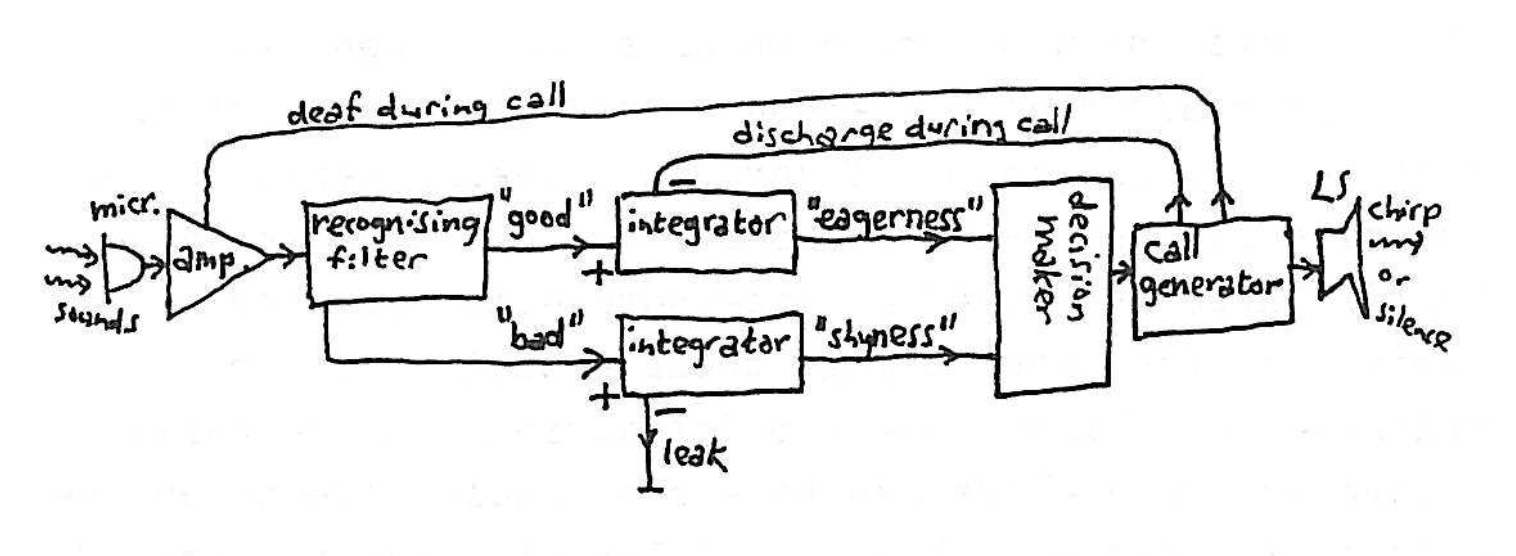 deaf during call
discharge during call
micr.
sounds
amp.
recognising
filter
"good"
+
−
integrator
"eagerness"
"bad"
+
integrator
−
leak
"shyness"
decision
maker
call
generator
LS
chirp
or
silence